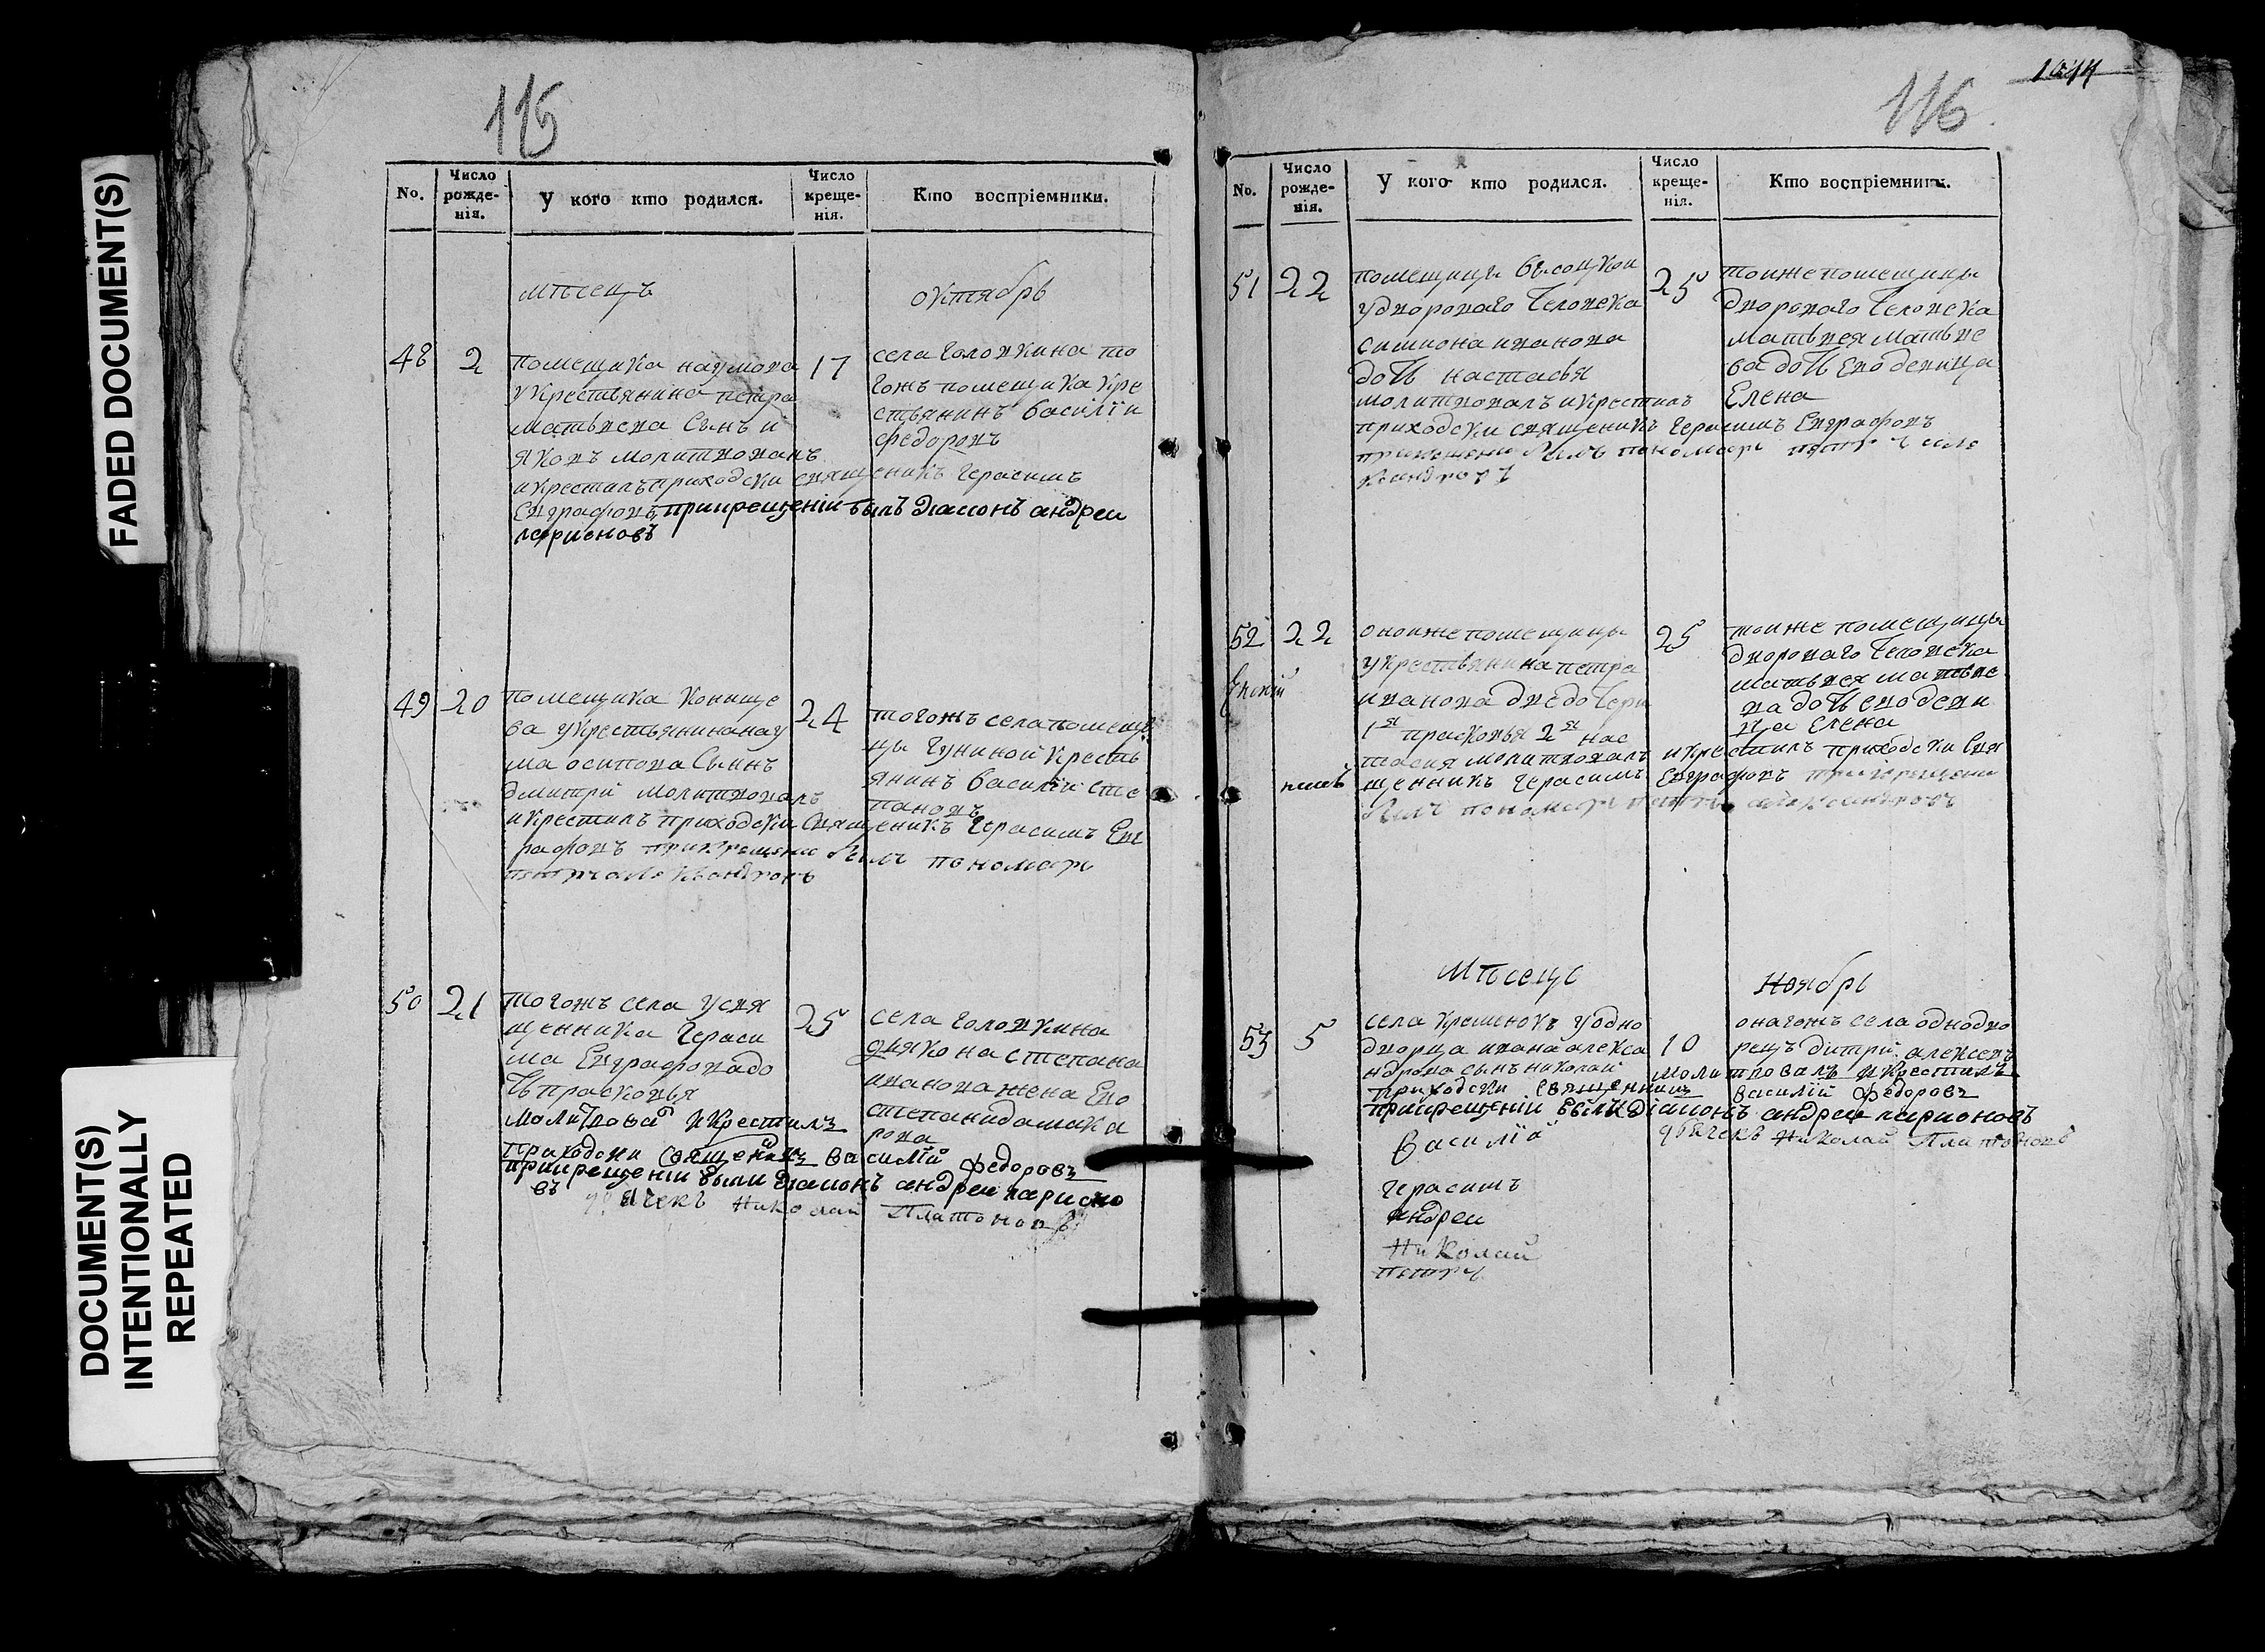 FADED DOCUMENT(S)
DOCUMENT(S)
INTENTIONALLY
REPEATED
115
No.
Число
рожде-
нія.
У кого кто родился.
Число
креще-
нія.
Кто воспріемники.
мѣсецъ
октябрь
48
2
помещика наумова
укрестьянина петра
матвѣева Сынъ
яковъ молитвовалъ
икрестилъ приходски священикъ Герасимъ
Евграфовъ прикрещеніи былъ диаконъ андреи
ларионовъ
17
села головкина то
гожъ помещика кре
стьянинъ василіи
федоровъ
49
20
помещика
ва укрестьянина нау
ма осипова Сынъ
дмитрій молитвовалъ
икрестилъ приходски священикъ Герасимъ Евг
рафовъ прикрещени былъ пономарь
петръ александровъ
24
тогожъ села помещи
цы крестья
янинъ василій сте
пановъ
50
21
тогожъ села усвя
щенника Гераси
ма Евграфова до
чь прасковья
молитвовал икрестилъ
приходски священникъ василій федоровъ
прикрещеніи были диаконъ андреи ларионо
въ
дьячекъ николай платоновъ
25
села головкина
дьякона степана
иванова жена ево
степанида мака
рова
1044
116
No.
Число
рожде-
нія.
У кого кто родился.
Число
креще-
нія.
Кто воспріемники.
51
22
помещицы высоцкои
удворового человека
симиона иванова
дочь настасья
молитвовалъ икрестилъ
приходски священикъ Герасимъ Евграфовъ
прикрещени былъ пономарь петръ але
ксандровъ
25
тоиже помещицы
дворового человека
матвея матвѣе
ва дочь ево девица
Елена
52
22
оноиже помещицы
укрестьянина петра
иванова две дочери
1я прасковья 2я нас
тасия молитвовалъ икрестилъ приходски свя
щенникъ Герасимъ Евграфовъ прикрещени
былъ пономарь петръ александровъ
25
тоиже помещицы
дворового человека
матвея матвѣе
ва дочь ево деви
ца Елена
мѣсецъ
Ноябрь
53
5
села кременокъ уодно
дворца ивана алекса
ндрова сынъ николай
10
онагожъ села однодво
рецъ дмтрий алексеевъ
молитвовалъ икрестилъ
приходски священникъ василій федоровъ
прикрещеніи были діаконъ андреи ларионовъ
дьячекъ николай платоновъ
Василій
Герасимъ
андреи
Николай
петръ